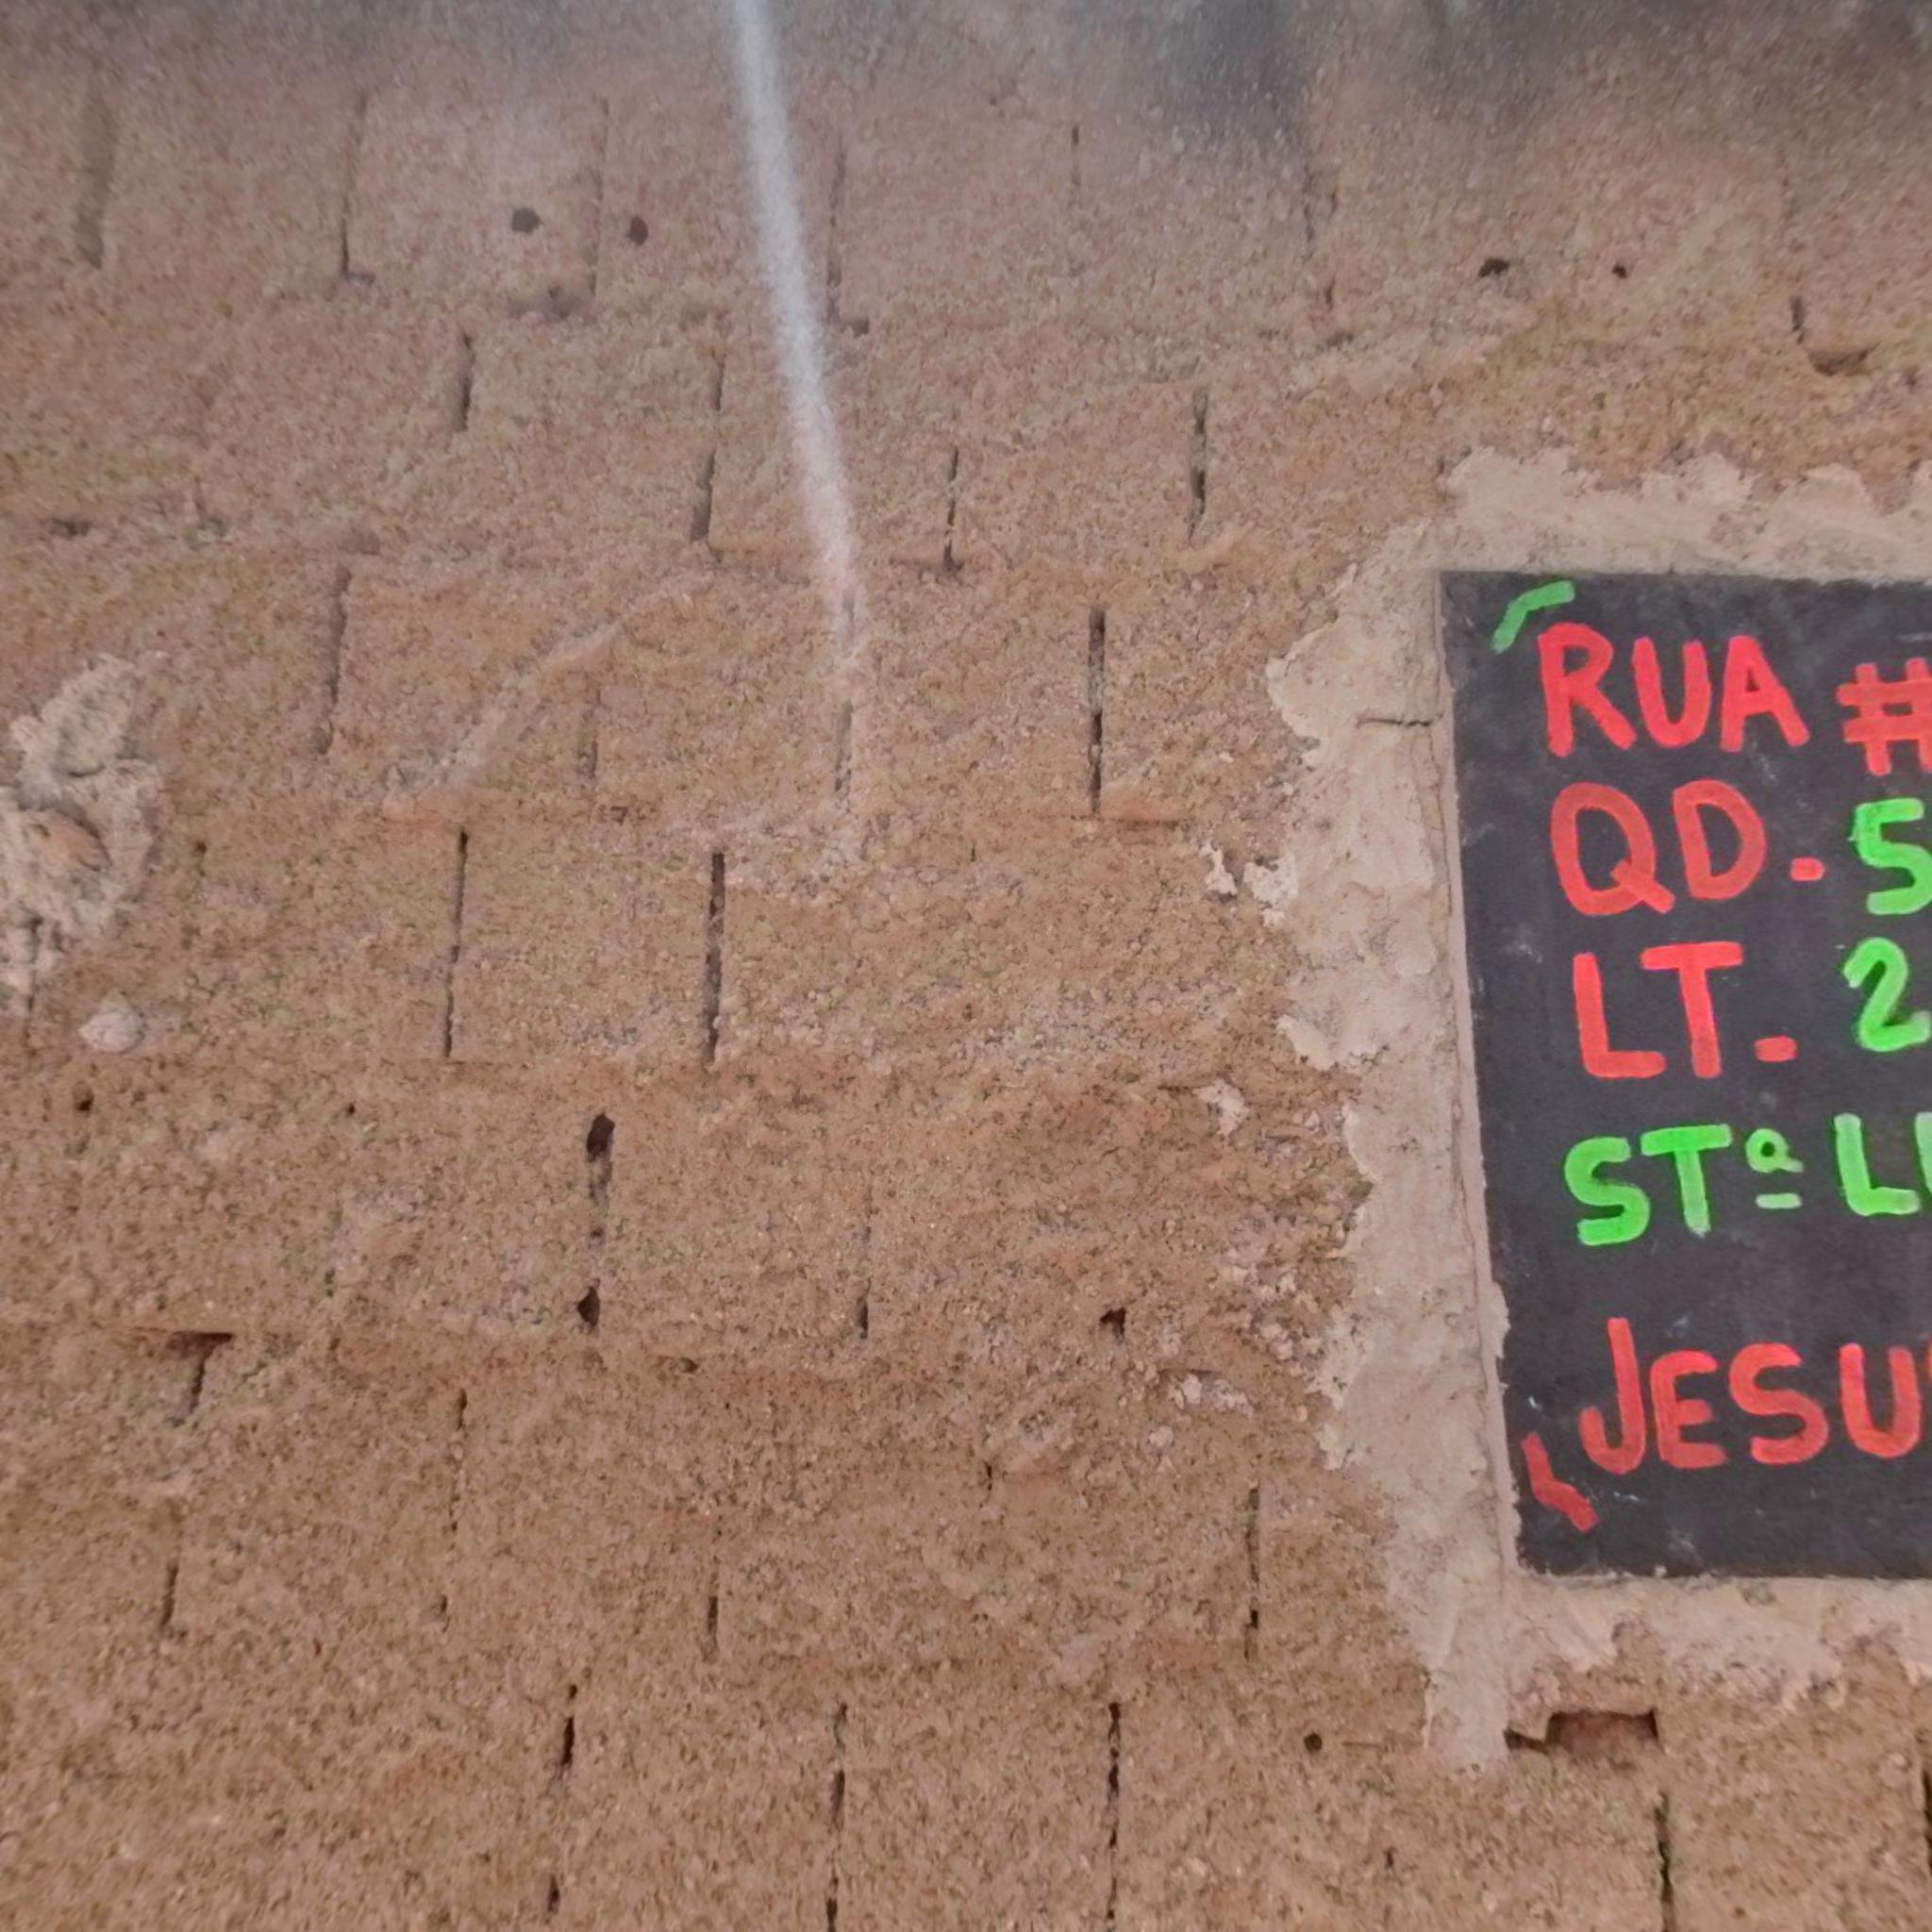 RUA #
QD. 5
LT. 2
STª
JESU